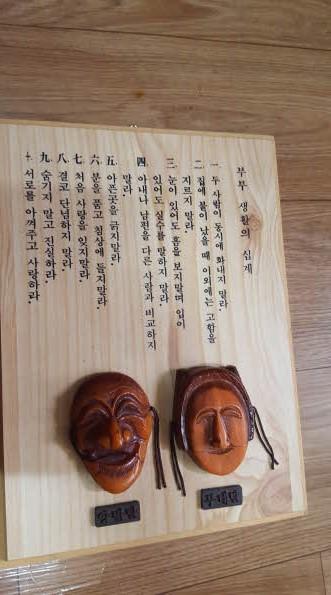 부부 생활의 십계
一 두 사람이 동시에 화내지 말라.
二 집에 불이 났을 때 이외에는 고함을
지르지 말라.
三 눈이 있어도 흠을 보지말며 입이
있어도 실수를 말하지 말라.
四 아내나 남편을 다른 사람과 비교하지
말라.
五 아픈곳을 긁지말라.
六 분을 품고 침상에 들지말라.
七 처음 사랑을 잊지말라.
八 결코 단념하지 말라.
九 숨기지 말고 진실하라.
十 서로를 아껴주고 사랑하라.
양반탈
부네탈